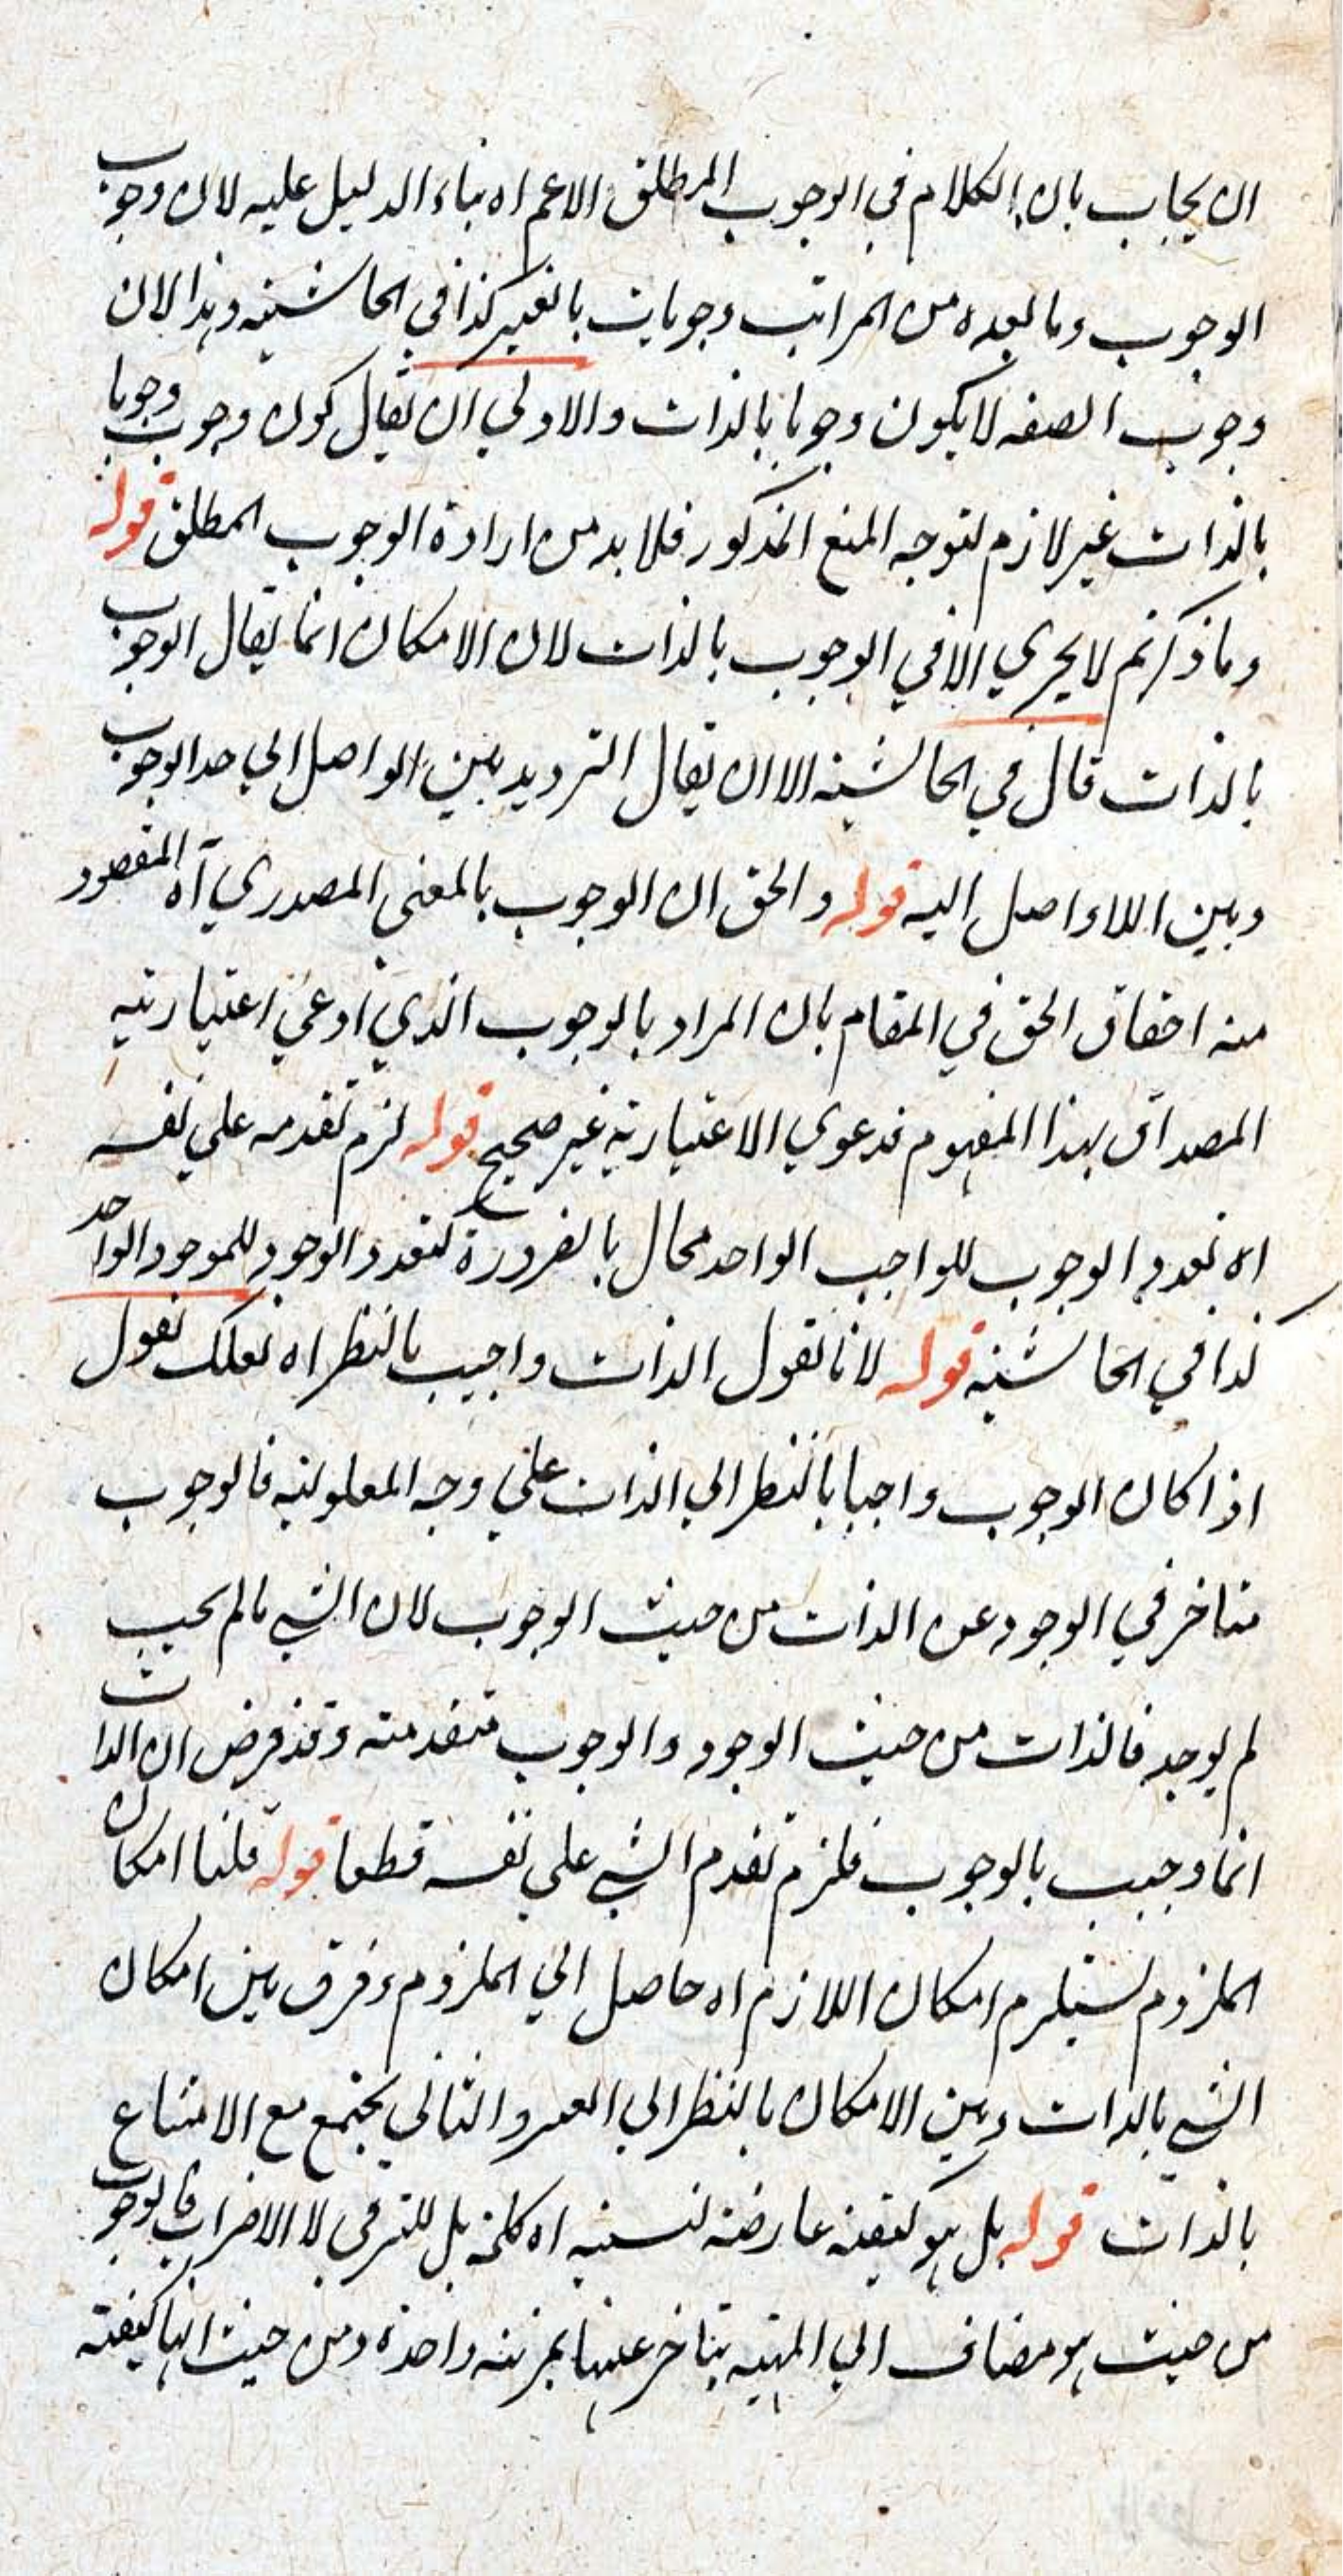 ان يجاب بان الكلام في الوجوب المطلق الاعم اه بناء الدليل عليه لان وجوب
الوجوب وما بعده من المراتب وجوبات بالغير كذا في الحاشية وهذا لان
وجوب الصفه لا يكون وجوبا بالذات والاولي ان يقال كون وجوب وجوبا
بالذات غير لازم لتوجه المنع المذكور فلا بد من ارادة الوجوب المطلق قوله
وما ذكرتم لا يجري الا في الوجوب بالذات لان الامكان انما يقال الوجوب
بالذات قال في الحاشية الا ان يقال الترديد بين الواصل الي حد الوجوب
وبين اللاواصل اليه قوله والحق ان الوجوب بالمعني المصدري آه المقصود
منه احقاق الحق في المقام بان المراد بالوجوب الذي ادعي اعتباريته
المصداق بهذا المفهوم فدعوي الاعتبارية غير صحيح قوله لزم تقدمه علي نفسه
اه تعدد الوجوب للواجب الواحد محال بالضرورة كتعدد الوجود للموجود الواحد
كذا في الحاشية قوله لانا نقول الذات واجب بالنظر اه لعلك تقول
اذا كان الوجوب واجبا بالنظر الي الذات علي وجه المعلولية فالوجوب
متاخر في الوجود عن الذات من حيث الوجوب لان الشي ما لم يجب
لم يوجد فالذات من حيث الوجود والوجوب متقدمته وقد فرض ان الذات
انما وجبت بالوجوب فلزم تقدم الشي علي نفسه قطعا قوله قلنا امكان
الملزوم يستلزم امكان اللازم اه حاصل الي الملزوم وفرق بين امكان
الشي بالذات وبين الامكان بالنظر الي الغير والثاني يجتمع مع الامتناع
بالذات قوله بل هو كيفية عارضة لنسبة اه كلمة بل للترقي لا الاضراب فالوجوب
من حيث هو مضاف الي المهية يتاخر عنها بمرتبه واحدة ومن حيث انها كيفية